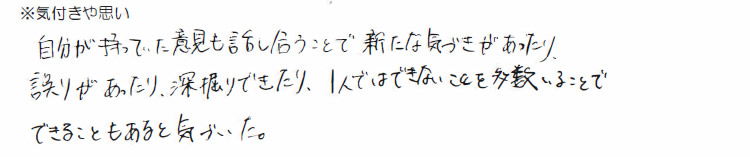 ※気付きや思い
自分が持っていた意見も話し合うことで新たな気づきがあったり、
誤りがあったり、深掘りできたり、1人ではできないことを多数いることで
できることもあると気づいた。